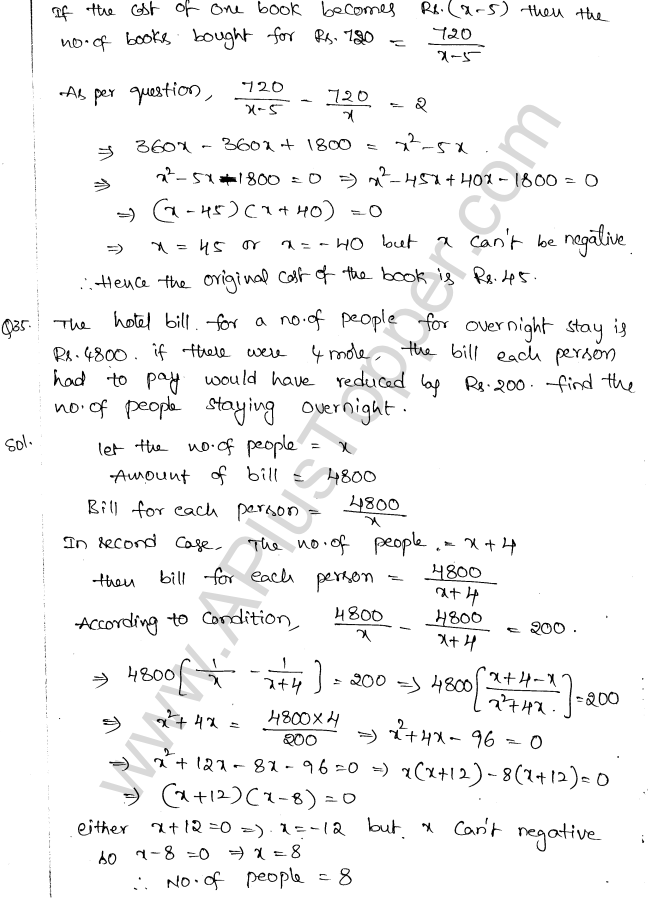 If the cost of one book becomes Rs.(x-5) then the
no.of books bought for Rs.720 = 720/(x-5)
As per question, 720/(x-5) - 720/x = 2
⇒ 360x - 360x + 1800 = x² - 5x.
⇒ x² - 5x - 1800 = 0 ⇒ x² - 45x + 40x - 1800 = 0
⇒ (x - 45)(x + 40) = 0
⇒ x = 45 or x = -40 but x can't be negative
∴ Hence the original cost of the book is Rs.45.
Q35. The hotel bill for a no.of people for overnight stay is
Rs.4800. if there were 4 more, the bill each person
had to pay would have reduced by Rs.200. find the
no.of people staying overnight.
Sol. let the no.of people = x
Amount of bill = 4800
Bill for each person = 4800/x
In second case, The no.of people = x+4
then bill for each person = 4800/(x+4)
According to Condition, 4800/x - 4800/(x+4) = 200.
⇒ 4800[1/x - 1/(x+4)] = 200 ⇒ 4800[(x+4-x)/(x²+4x)] = 200
⇒ x² + 4x = (4800×4)/200 ⇒ x² + 4x - 96 = 0
⇒ x² + 12x - 8x - 96 = 0 ⇒ x(x+12) - 8(x+12) = 0
⇒ (x+12)(x-8) = 0
either x+12 = 0 ⇒ x = -12 but x can't negative
so x-8 = 0 ⇒ x = 8
∴ No.of people = 8
www.APlusTopper.com